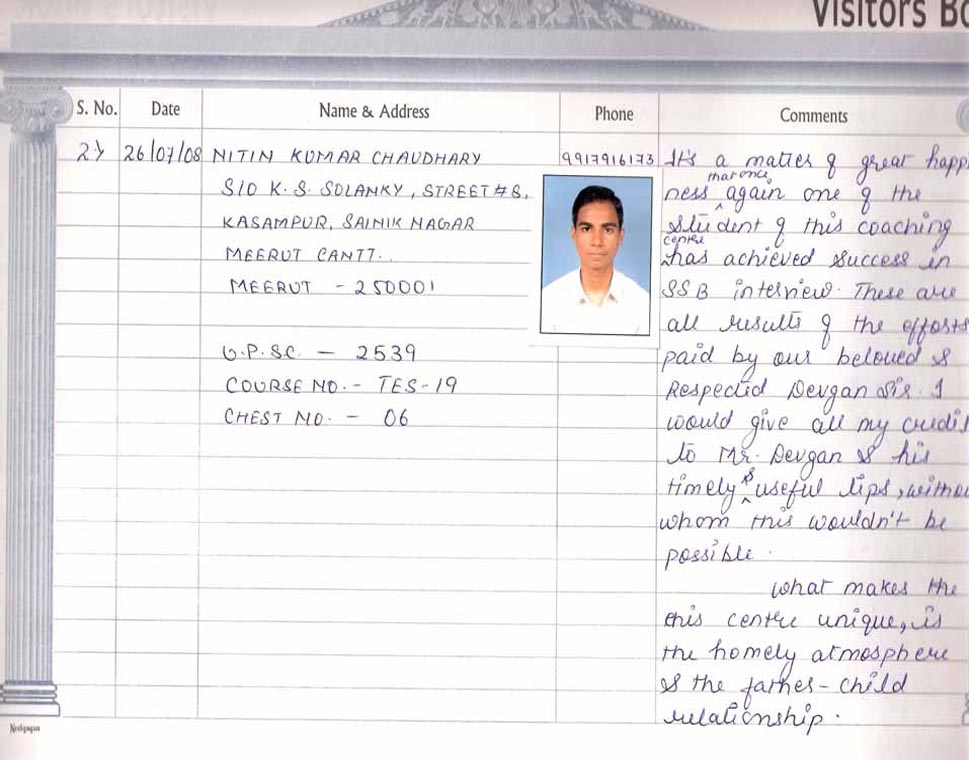 Visitors Bo
S. No. Date Name & Address Phone Comments
2) 26/07/08 NITIN KUMAR CHAUDHARY 9917916173 It's a matter of great happi
S/O K. S. SOLANKY, STREET # 8, ness that once again one of the
KASAMPUR, SAINIK NAGAR student of this coaching
MEERUT CANTT. centre has achieved success in
MEERUT - 250001 SSB interview. These are
all results of the efforts
U.P.SC. - 2539 paid by our beloved &
COURSE NO. - TES-19 Respected Devgan Sir. I
CHEST NO. - 06 would give all my credit
to Mr. Devgan & his
timely & useful tips, withou
whom this wouldn't be
possible.
What makes the
this centre unique, is
the homely atmosphere
& the father-child
relationship.